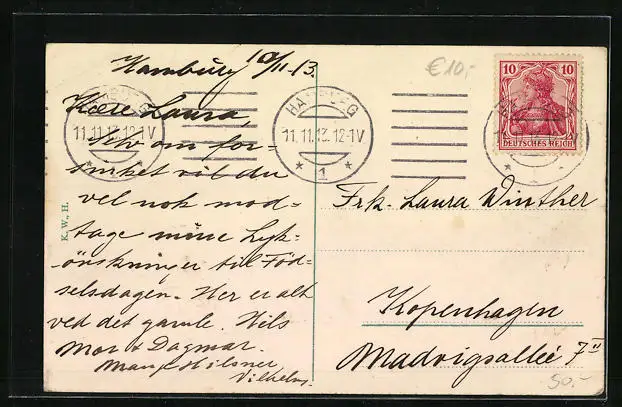 Hamburg 10/11. 13.
€10,-
Kære Laura,
Selv om for-
sinket vil du
vel nok mod-
tage mine Lyk-
ønskninger til Föd-
selsdagen. Her er alt
ved det gamle. Hils
Mor & Dagmar.
Mange Hilsner
Vilhelm.
K. W., H.
HAMBURG
11.11.13.12-1V
* 1 *
HAMBURG
11.11.13.12-1V
* 1 *
10 10
DEUTSCHES REICH
Frk. Laura Winther
Kopenhagen
Madvigsallée 7 II
50,-